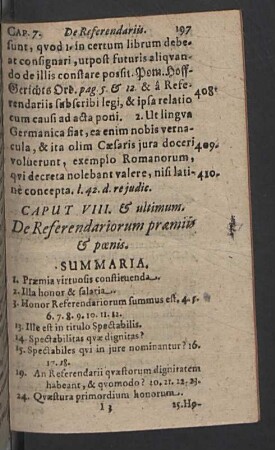 CAP. 7. De Referendariis. 197
sunt, qvod 1. in certum librum debe-
at consignari, utpost futuris aliqvan-
do de illis constare possit. Pom. Hoff-
Gerichts Ord. pag 5. & 12. & à Refe- 408.
rendariis subscribi legi, & ipsa relatio
cum causi ad acta poni. 2. Ut lingva
Germanica fiat, ea enim nobis verna-
cula, & ita olim Cæsaris jura doceri 409.
voluerunt, exemplo Romanorum,
qvi decreta nolebant valere, nisi lati- 410.
ne concepta. l. 42. d. re judic.
CAPUT VIII. & ultimum.
De Referendariorum præmiis
& pœnis.
SUMMARIA.
1. Præmia virtuosis constituenda.
2. Illa honor & salaria.
3. Honor Referendariorum summus est, 4. 5.
6. 7. 8. 9. 10. 11. 12.
13. Ille est in titulo Spectabilis.
14. Spectabilitas qvæ dignitas?
15. Spectabiles qvi in jure nominantur? 16.
17. 18.
19. An Referendarii qvæstorum dignitatem
habeant, & qvomodo? 20. 21. 22. 23.
24. Qvæstura primordium honorum.
I 3 25. Ho-